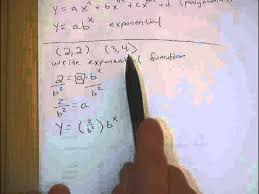 y = ax^n + bx^n + cx^n + d (polynomial
y = ab^x exponential
(2,2) (3,4)
write exponential function
2 = a · b^2
2/b^2 = a
y = (2/b^2) b^x